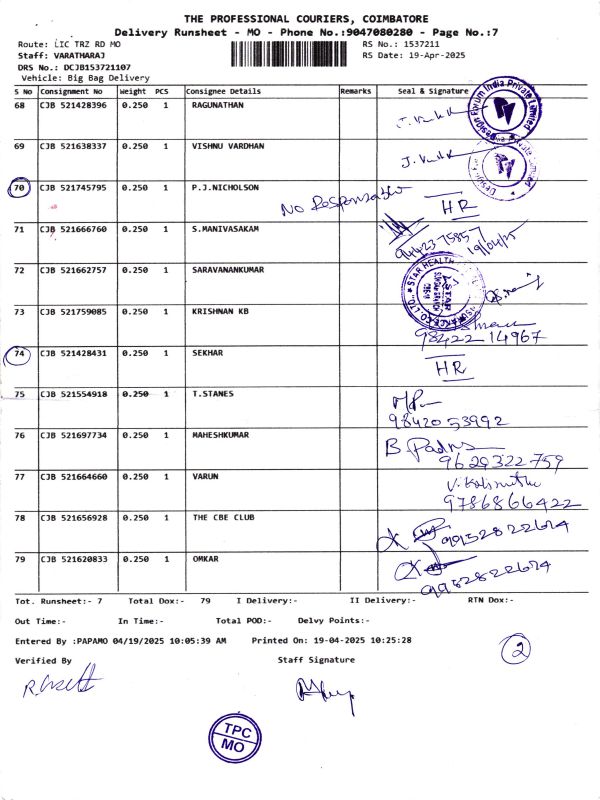 THE PROFESSIONAL COURIERS, COIMBATORE
Delivery Runsheet - MO - Phone No.:9047080280 - Page No.:7
Route: LIC TRZ RD MO
RS No.: 1537211
Staff: VARATHARAJ
RS Date: 19-Apr-2025
DRS No.: DCJB153721107
Vehicle: Big Bag Delivery
S No Consignment No Weight PCS Consignee Details Remarks Seal & Signature
68 CJB 521428396 0.250 1 RAGUNATHAN
Design Forum India Private Limited
69 CJB 521638337 0.250 1 VISHNU VARDHAN
70 CJB 521745795 0.250 1 P.J.NICHOLSON No Responsable HR
71 CJB 521666760 0.250 1 S.MANIVASAKAM
94423 75857 19/04/25
72 CJB 521662757 0.250 1 SARAVANANKUMAR
STAR HEALTH
STAR
73 CJB 521759085 0.250 1 KRISHNAN KB
98422 14967
74 CJB 521428431 0.250 1 SEKHAR HR
75 CJB 521554918 0.250 1 T.STANES
98420 53992
76 CJB 521697734 0.250 1 MAHESHKUMAR B. Padma
9629322759
77 CJB 521664660 0.250 1 VARUN
9786866422
78 CJB 521656928 0.250 1 THE CBE CLUB
79 CJB 521620833 0.250 1 OMKAR
Tot. Runsheet:- 7 Total Dox:- 79 I Delivery:- II Delivery:- RTN Dox:-
Out Time:- In Time:- Total POD:- Delvy Points:-
Entered By :PAPAMO 04/19/2025 10:05:39 AM Printed On: 19-04-2025 10:25:28
2
Verified By Staff Signature
TPC
MO